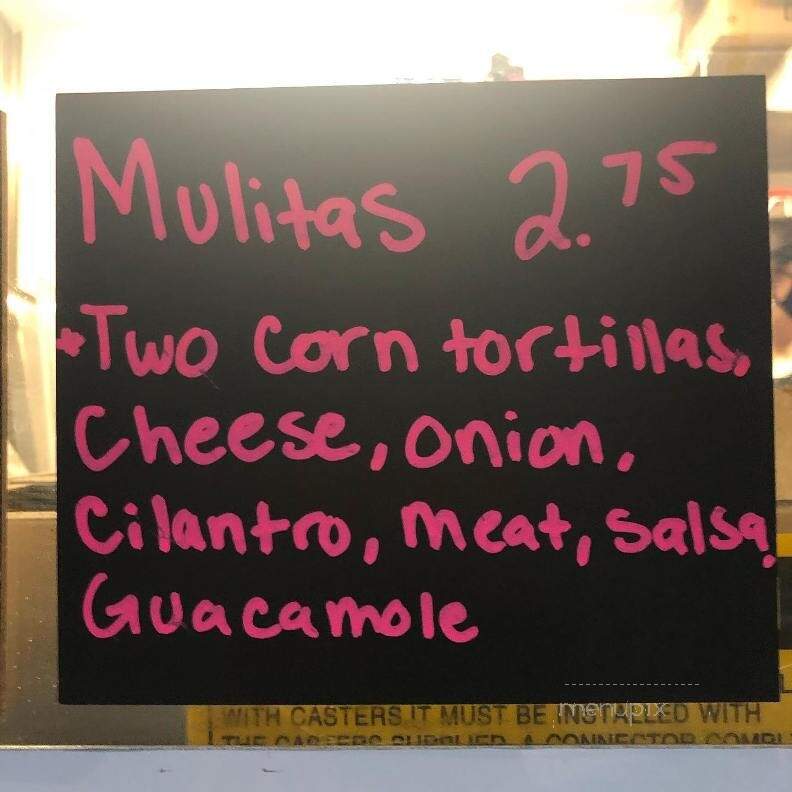 Mulitas 2.75
*Two Corn tortillas,
Cheese, onion,
Cilantro, meat, salsa,
Guacamole
menupix
WITH CASTERS IT MUST BE INSTALLED WITH
THE CASTERS SUPPLIED A CONNECTOR